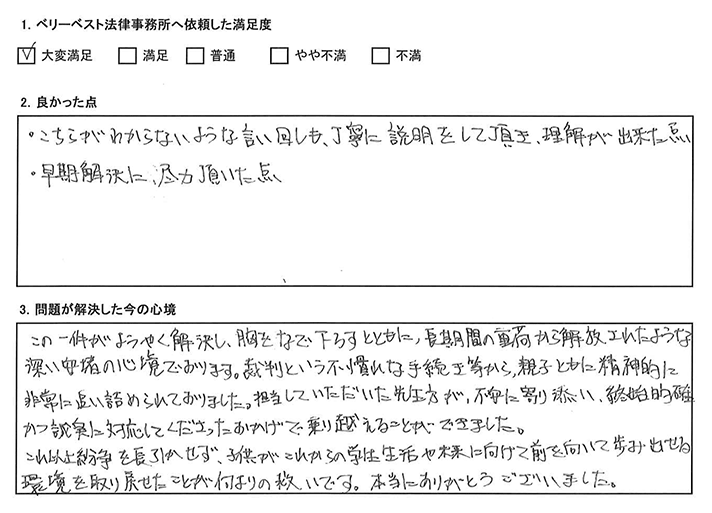 1. ベリーベスト法律事務所へ依頼した満足度
☑ 大変満足 □ 満足 □ 普通 □ やや不満 □ 不満
2. 良かった点
・こちらがわからないような言い回しも、丁寧に説明をして頂き、理解が出来た点
・早期解決に、尽力頂いた点
3. 問題が解決した今の心境
この一件がようやく解決し、胸をなで下ろすとともに、長期間の重荷から解放されたような
深い安堵の心境であります。裁判という不慣れな手続き等から、親子ともに精神的に
非常に追い詰められておりました。担当していただいた先生方が、不安に寄り添い、終始的確
かつ誠実に対応してくださったおかげで乗り越えることができました。
これ以上紛争を長引かせず、子供がこれからの学生生活や未来に向けて前を向いて歩み出せる
環境を取り戻せたことが何よりの救いです。本当にありがとうございました。